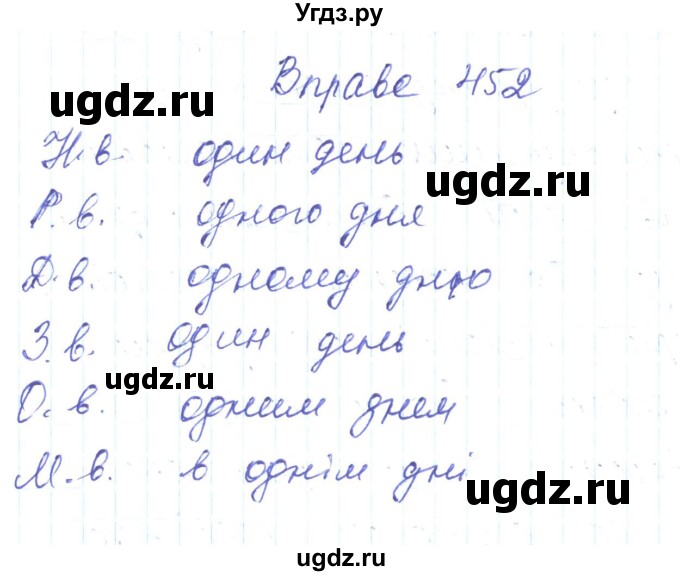 Угдз.ру
Вправа 452
ugdz.ru
Н.в. один день
ugdz.ru
Р.в. одного дня
Д.в. одному дню
З.в. один день
ugdz.ru
О.в. одним днем
М.в. в однім дні
ugdz.ru
ugdz.ru